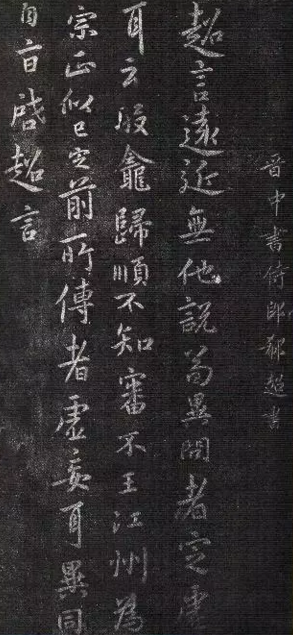 晋中書侍郎郗超書
超言遠近無他說為異問者定虛
耳云殷龕歸順不知審不王江州為
宗正似已定前所傳者虛妄耳異同
自啓超言